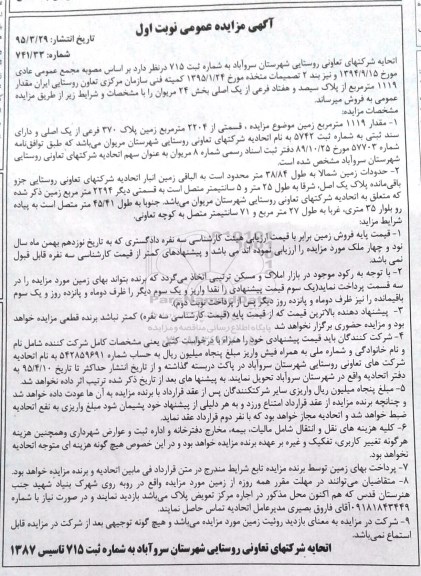 آگهی مزایده عمومی نوبت اول
تاریخ انتشار: ۹۵/۳/۲۹
شماره: ۷۴۱/۳۳
اتحایه شرکتهای تعاونی روستایی شهرستان سروآباد به شماره ثبت ۷۱۵ درنظر دارد بر اساس مصوبه مجمع عمومی عادی
مورخ ۱۳۹۴/۹/۱۵ و نیز بند ۲ تصمیمات متخذه مورخ ۱۳۹۵/۱/۲۴ کمیته فنی سازمان مرکزی تعاون روستایی ایران مقدار
۱۱۱۹ مترمربع از پلاک سیصد و هفتاد فرعی از یک اصلی بخش ۲۴ مریوان را با مشخصات و شرایط زیر از طریق مزایده
عمومی به فروش میرساند.
مشخصات مزایده:
۱- مقدار ۱۱۱۹ مترمربع زمین موضوع مزایده ، قسمتی از ۲۲۰۴ مترمربع زمین پلاک ۳۷۰ فرعی از یک اصلی و دارای
سند ثبتی به شماره ثبت ۵۷۴۲ به نام اتحادیه شرکتهای تعاونی روستایی شهرستان مریوان می‌باشد که طبق توافق‌نامه
شماره ۵۷۷۰۳ مورخ ۸۹/۱۰/۲۵ دفتر ثبت اسناد رسمی شماره ۸ مریوان به عنوان سهم اتحادیه شرکتهای تعاونی روستایی
شهرستان سروآباد مشخص شده است.
۲- حدودات زمین شمالا به طول ۳۸/۸۴ متر محدود است به الباقی زمین انبار اتحادیه شرکتهای تعاونی روستایی جزو
باقی‌مانده پلاک یک اصل، شرقا به طول ۲۵ متر و ۵ سانتیمتر متصل است به قسمتی دیگر ۲۲۹۴ متر مربع زمین ذکر شده
که متعلق به اتحادیه شرکتهای تعاونی روستایی شهرستان مریوان می‌باشد. جنوبا به طول ۴۵/۴۱ متر متصل است به پیاده
رو بلوار ۳۵ متری، غربا به طول ۲۷ متر مربع و ۷۱ سانتیمتر متصل به کوچه تعاونی.
شرایط مزاید:
۱- قیمت پایه فروش زمین برابر با قیمت ارزیابی هیئت کارشناسی سه نفره دادگستری که به تاریخ نوزدهم بهمن ماه سال
نود و چهار ملک مورد مزایده را ارزیابی نموده اند می باشد و پیشنهادهای کمتر از قیمت کارشناسی سه نفره قابل قبول
نمی باشد.
۲- با توجه به رکود موجود در بازار املاک و مسکن ترتیبی اتخاذ می‌گردد که برنده بتواند بهای زمین مورد مزایده را در
سه قسمت پرداخت نماید(یک سوم قیمت پیشنهادی را نقدا واریز و یک سوم دیگر را ظرف دوماه و پانزده روز و یک سوم
باقیمانده را نیز ظرف دوماه و پانزده روز دیگر پس از پرداخت نوبت دوم).
۳- پیشنهاد دهنده بالاترین قیمت که از قیمت پایه (قیمت کارشناسی سه نفره) کمتر نباشد برنده قطعی مزایده خواهد
بود و مزایده حضوری برگزار نخواهد شد
۴- شرکت کنندگان باید قیمت پیشنهادی خود را همراه با درخواست کتبی یعنی مشخصات کامل شرکت کننده شامل نام
و نام خانوادگی و شماره ملی به همراه فیش واریز مبلغ پنجاه میلیون ریال به حساب شماره ۵۴۲۸۵۹۶۹۱ به نام اتحادیه
شرکت های تعاونی روستایی شهرستان سروآباد در پاکت دربسته گذاشته و از تاریخ انتشار حداکثر تا تاریخ ۹۵/۴/۱۰ به
دفتر اتحادیه واقع در شهرستان سروآباد تحویل نمایند. به پیشنهاد های بعد از تاریخ ذکر شده ترتیب اثر داده نخواهد شد.
۵- مبلغ پنجاه میلیون ریال واریزی سایر شرکتکنندگان پس از عقد قرارداد با برنده مزایده به آن ها عودت داده خواهد شد
و چنانچه برنده مزایده از عقد قرارداد امتناع ورزد و به هر دلیلی از پیشنهاد خود پشیمان شود مبلغ واریزی به نفع اتحادیه
ضبط خواهد شد و اتحادیه مجاز خواهد بود که با نفر دوم قرارداد عقد نماید.
۶- کلیه هزینه های نقل و انتقال شامل مالیات، بیمه، مخارج دفترخانه و اداره ثبت و عوارض شهرداری وهمچنین هزینه
هرگونه تغییر کاربری، تفکیک و غیره بر عهده برنده مزایده خواهد بود و در این خصوص هیچ گونه هزینه ای متوجه اتحادیه
نخواهد بود.
۷- پرداخت بهای زمین توسط برنده مزایده تابع شرایط مندرج در متن قرارداد فی مابین اتحادیه و برنده مزایده خواهد بود.
۸- متقاضیان می‌توانند در مهلت مقرر همه روزه از زمین مورد مزایده واقع در روبه روی شهرک بنیاد شهید جنب
هنرستان قدس که هم اکنون محل مذکور در اجاره مرکز تعویض پلاک می‌باشد بازدید نمایند و در صورت نیاز با شماره
۰۹۱۸۱۸۴۳۴۴۹آقای فاروق بصیری مدیرعامل اتحادیه تماس حاصل نمایند.
۹- شرکت در مزایده به معنای بازدید روئیت زمین مورد مزایده می‌باشد و هیچ گونه توجیهی بعد از شرکت در مزایده قابل
استماع نمی‌باشد.
اتحایه شرکتهای تعاونی روستایی شهرستان سروآباد به شماره ثبت ۷۱۵ تاسیس ۱۳۸۷